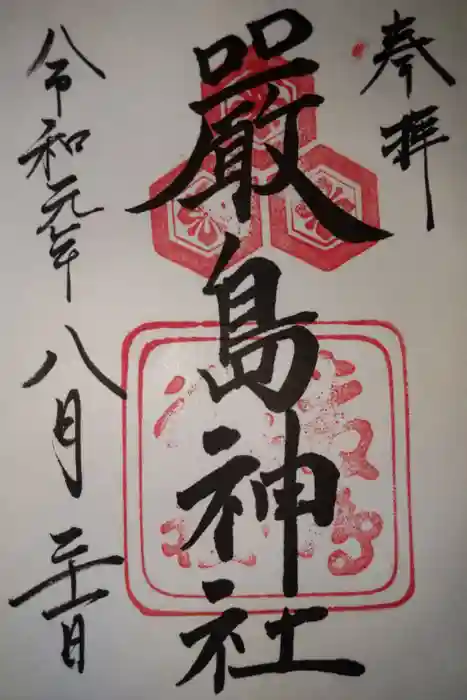 奉拝
嚴島神社
令和元年八月二十一日